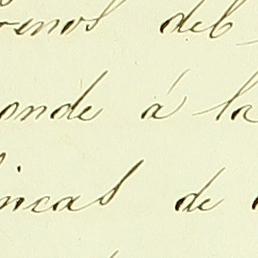 renos del
onde á la
incas de